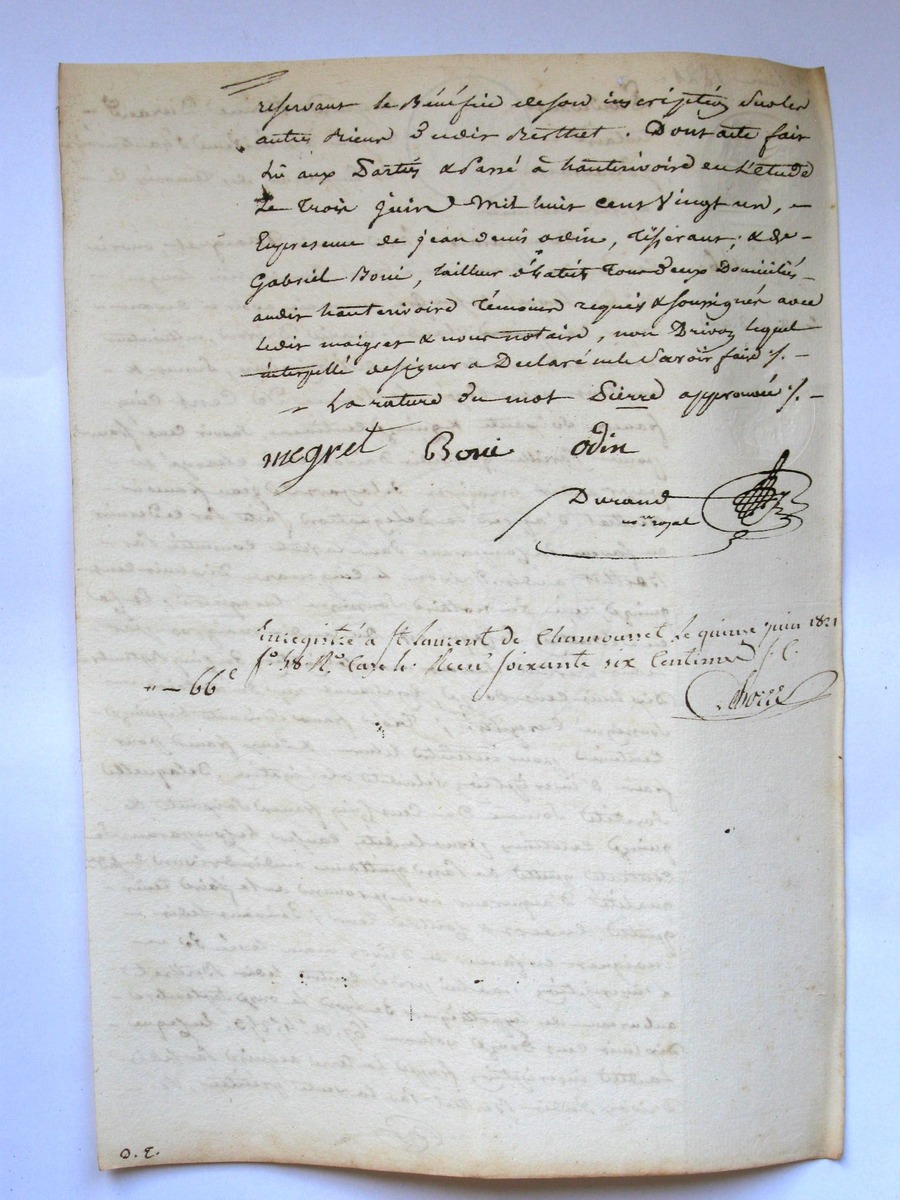 reservant le Bénéfice de son inscription Sur les
autres Biens dudit Berthet. Dont acte fait
Lu aux Parties & Passé à hauterivoire en L'étude
Le Trois Juin Mil huit cent Vingt un, –
En présence de jean denis odin, Tisserant, & de –
Gabriel Boni, Tailleur d'habits Tous deux Domiciliés –
audit hauterivoire Témoins requis & soussignés avec
ledit maigret & nous notaire, non Drivon lequel
interpellé de signer a Déclaré ne le Savoir faire ./. –
– La rature du mot Pierre approuvée ./. –
megret Boni odin
Durand
n.re royal
Enregistré à St laurent de Chamousset, le quinze juin 1821
f.o 48 R.o Case 1e. Reçu soixante six Centimes
" – 66 c
D. E.